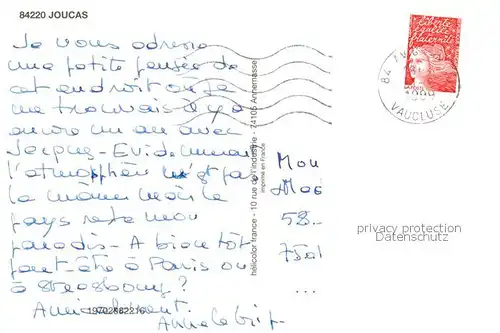 84220 JOUCAS
Je vous adresse
une petite pensée de
cet endroit où je
me trouvais il y a
encore un an avec
Jacques - Evidemment
l'atmosphère n'est pas
la même mais le
pays reste mon
paradis - A bientôt
peut-être à Paris ou
à Strasbourg?
Amicalement.
19702882216
hélicolor france - 10 rue de l'industrie - 74105 Annemasse
imprimé en France
liberté
égalité
fraternité
84
VAUCLUSE
Mon
58..
7501
...
privacy protection
Datenschutz